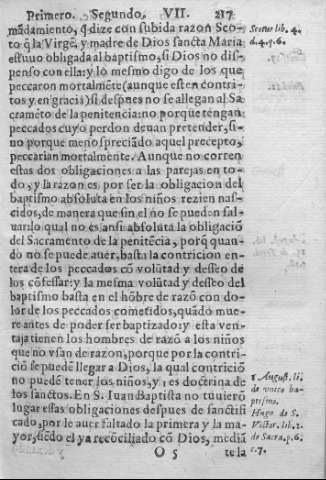 Primero. Segundo. VII. 217
mãdamiento, q̃ dize con subida razon Sco-
to q̃ la Virgẽ, y madre de Dios sancta Maria
estuuo obligada al baptismo, si Dios no dis-
penso con ella: y lo mesmo digo de los que
peccaron mortalmẽte (aunque esten contri-
tos y en gracia) si despues no se allegan al Sa-
cramẽto de la penitencia: no porque tengan
peccados cuyo perdon deuan pretender, si-
no porque menospreciãdo aquel precepto,
peccarian mortalmente. Aunque no corren
estas dos obligaciones a las parejas en to-
do, y la razon es, por ser la obligacion del
baptismo absoluta en los niños rezien nas-
cidos, de manera que sin el ño se pueden sal-
uar: lo qual no es ansi absoluta la obligaciõ
del Sacramento de la penitẽcia, porq̃ quan-
do no se puede auer, basta la contricion en-
tera de los peccados cõ volũtad y desseo de
los cõfessar: y la mesma volũtad y desseo del
baptismo basta en el hõbre de razõ con do-
lor de los peccados cometidos, quãdo mue-
re antes de poder ser baptizado: y esta ven-
taja tienen los hombres de razõ a los niños
que no vsan de razon, porque por la contri-
ciõ se puedẽ llegar a Dios, la qual contriciõ
no puedẽ tener los niños, y 1 es doctrina de
los sanctos. En S. Iuan Baptista no tuuierõ
lugar estas obligaciones despues de sanctifi
cado, por le auer faltado la primera y la ma-
yor, siẽdo el ya recõciliado cõ Dios, mediã
O 5 te la
Scotus lib. 4.
d. 4. q. 6.
1 August. li.
de vnico ba-
ptismo.
Hugo de S.
Victor. lib. 2.
de Sacra. p. 6.
c. 7.